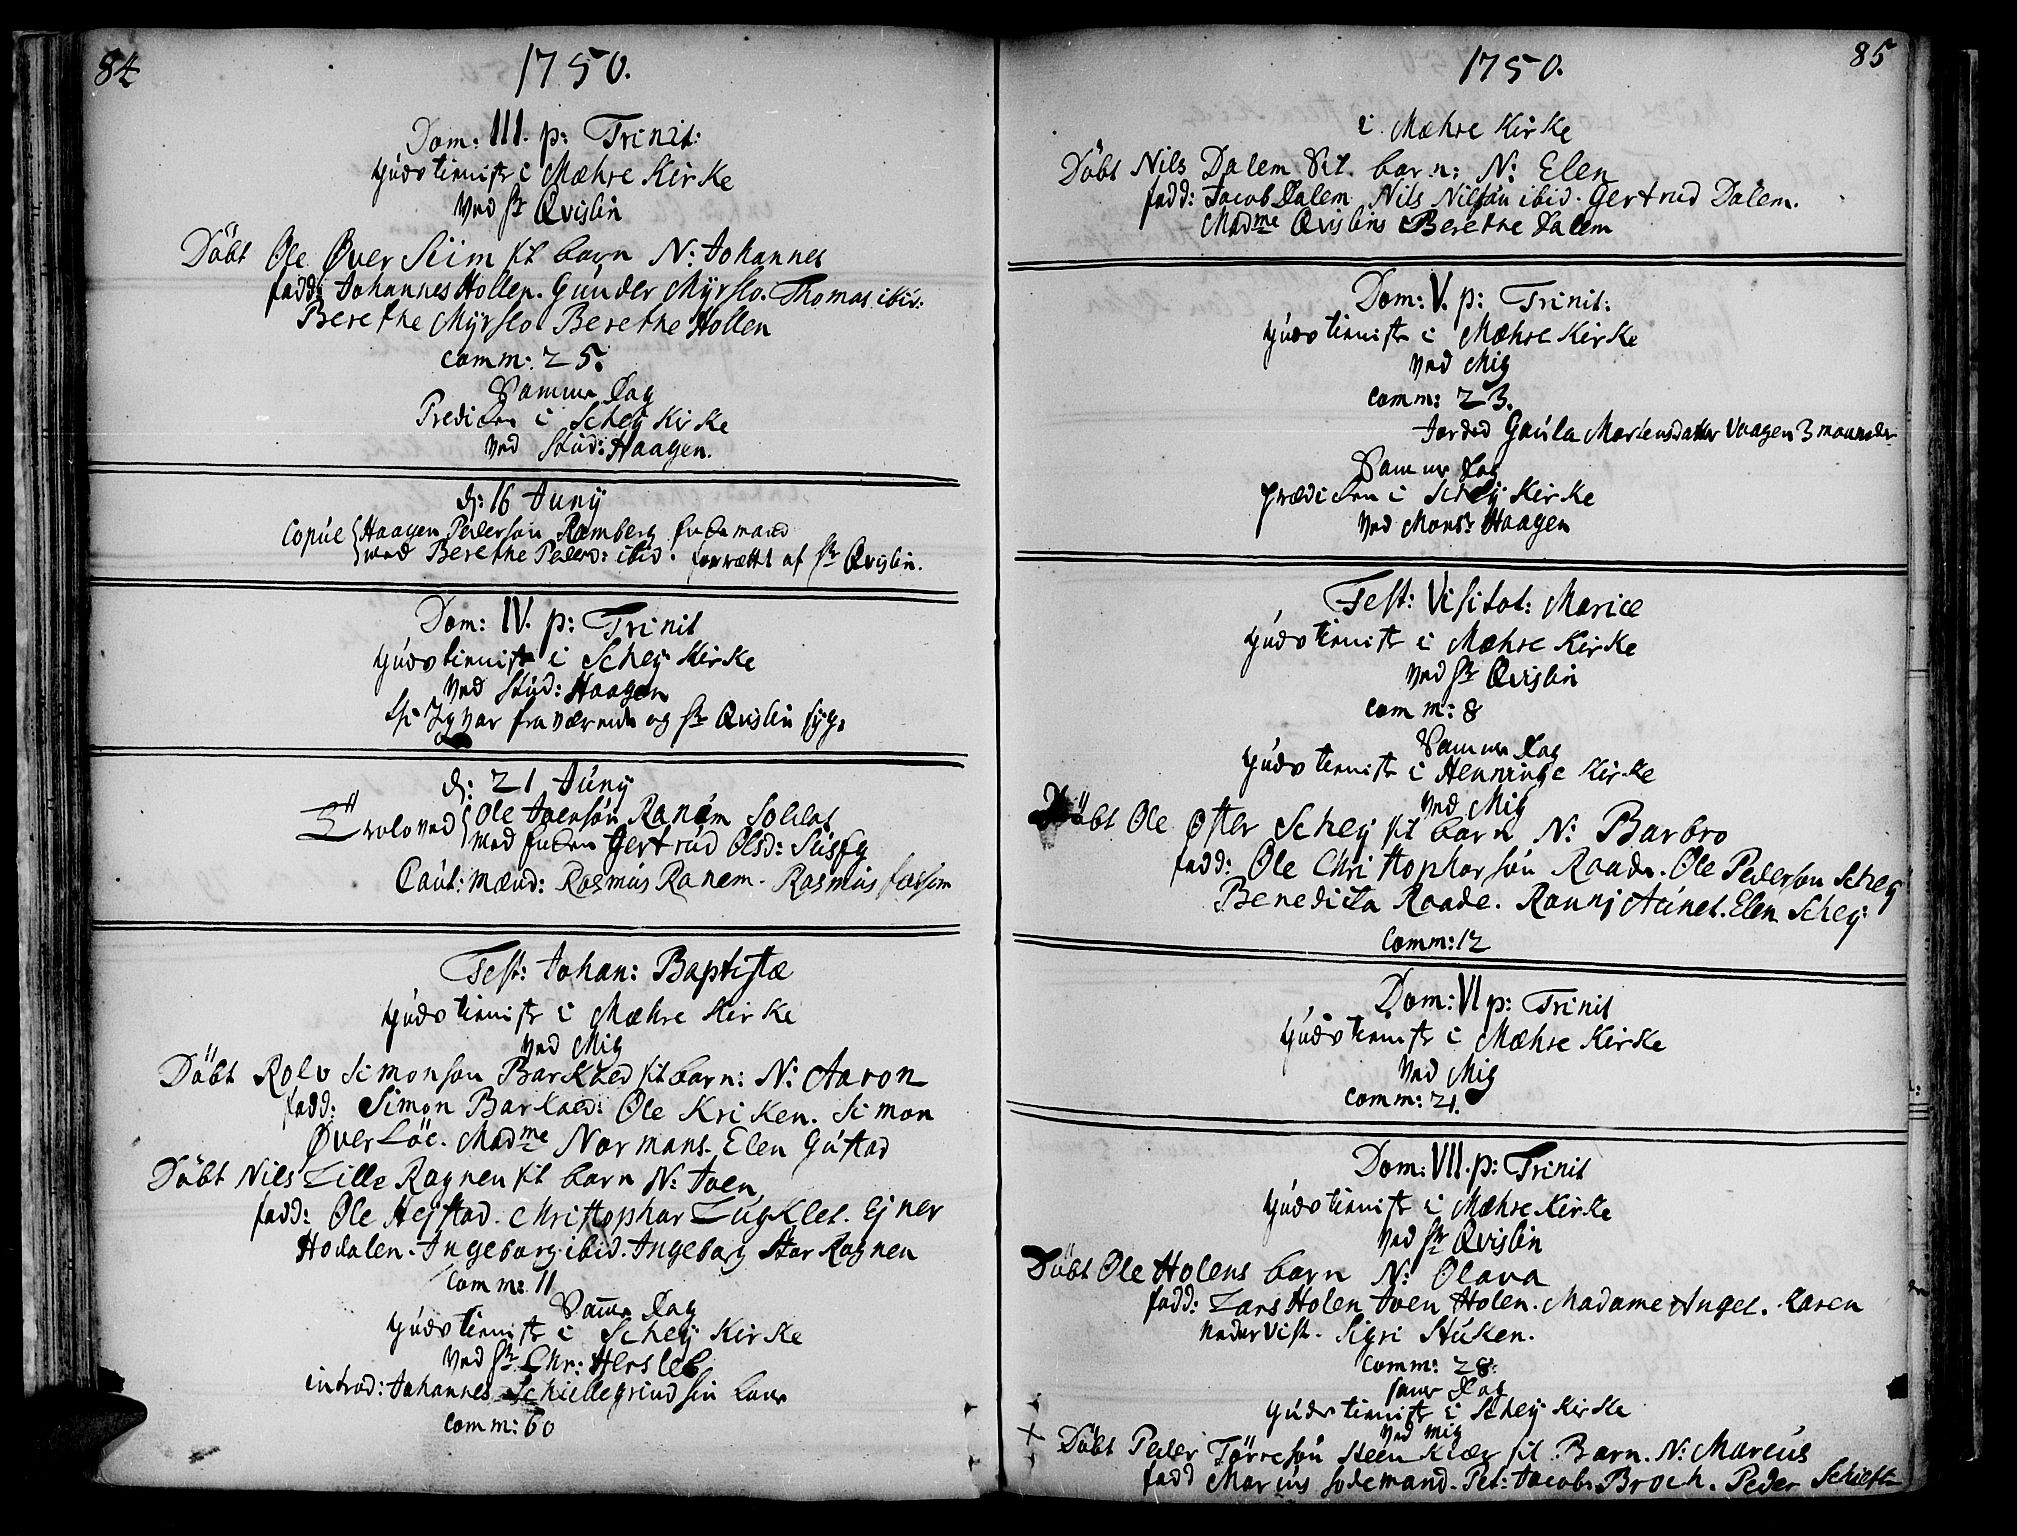 84
1750.
Dom: III. p: Trinit:
Gúdstieniste i Mæhre Kirke
Ved Hr Qvislin
Döbt Ole Øver Siim sit barn N: Johannes
fadd: Johannes Hollen. Gúnder Mÿrslo. Thomas ibid:
Berethe Mÿrslo Berethe Hollen
comm: 25.
Samme Dag
Prediken i Scheÿ Kirke
ved Stúd: Haagen.
d: 16 Junÿ
Copúe Haagen Pedersøn Ramberg
med Berethe Pedersd: ibid. forrættet af Hr Qvislin.
Dom: IV. p: Trinit
Gúdstieniste i Scheÿ Kirke
Ved Stúd: Haagen
Jeg var fraværende og Hr Qvislin sÿg.
d: 21 Júnÿ
Troloved Ole Joensøn Raném Soldat
med Gertrúd Olsd:
Caut: mænd: Rasmus Ranem. Rasmus
Fest: Johan: Baptistæ
Gúdstieniste i Mæhre Kirke
ved Mig
Döbt Rolv Simonsøn Barkaed sit barn: N: Aaron
fadd: Simon Barkaed: Ole Kriken. Simon
Øver Löe. Madme Normans. Elen Gústad
Döbt Nils Lille Ragnen sit barn N: Joen
fadd: Ole Hejstad. Christopher Lúgklet. Ejner
Hodalen. Ingeborg ibid. Ingeborg Stor Ragnen
Comm: 11
Samme Dag
Gúdstieniste i Scheÿ Kirke
Ved Hr Chr: Hersleb
introd: Johannes Schiellegrind sin kone
Comm: 60
85
1750.
i Mæhre Kirke
Döbt Nils Dalem sit barn: N: Elen
fadd: Jacob Dalem Nils Nilsøn ibid. Gertrud Dalem.
Madme Qvislins Berethe Dalem
Dom: V. p: Trinit:
Gúdstieniste i Mæhre Kirke
Ved Mig
Comm: 23.
Jorded Goúla Mortensdatter Vaagen 3 maaneder
Samme Dag
Prædiken i Scheÿ Kirke
Ved Monsr Haagen
Fest: Visitat: Mariæ
Gúdstieniste i Mæhre Kirke
ved Hr Qvislin
Comm: 8
Samme Dag
Gúdstieniste i Henninge Kirke
Ved Mig
Döbt Ole Øster Scheÿ sit barn N: Barbro
fadd: Ole Christophersøn Raade. Ole Pedersøn Scheÿ
Benedicta Raade. Rannj Aúnet. Elen Scheÿ
Comm: 12
Dom: VI p: Trinit
Gúdstieniste i Mæhre Kirke
Ved Mig
Comm: 21.
Dom: VII. p: Trinit
Gúdstieniste i Mæhre Kirke
Ved Hr Qvislin
Döbt Ole Holens barn N: Olava
fadd: Lars Holen Joen Holen. Madame Angel. Karen
Nedervist. Sigri Stúken.
Comm: 28.
samme Dag
Gúdstieniste i Scheÿ Kirke
Ved mig
Döbt Peder Törresøn Steenkiær sit Barn. N: Marcús
fadd Marcus sodemand. Pet: Jacob: Broch. Peder